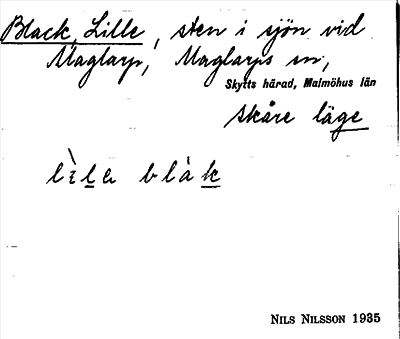 Black, Lille, sten i sjön vid
Maglarp, Maglarps sn,
Skytts härad, Malmöhus län
Skåre läge
lìlа blàk
NILS NILSSON 1935